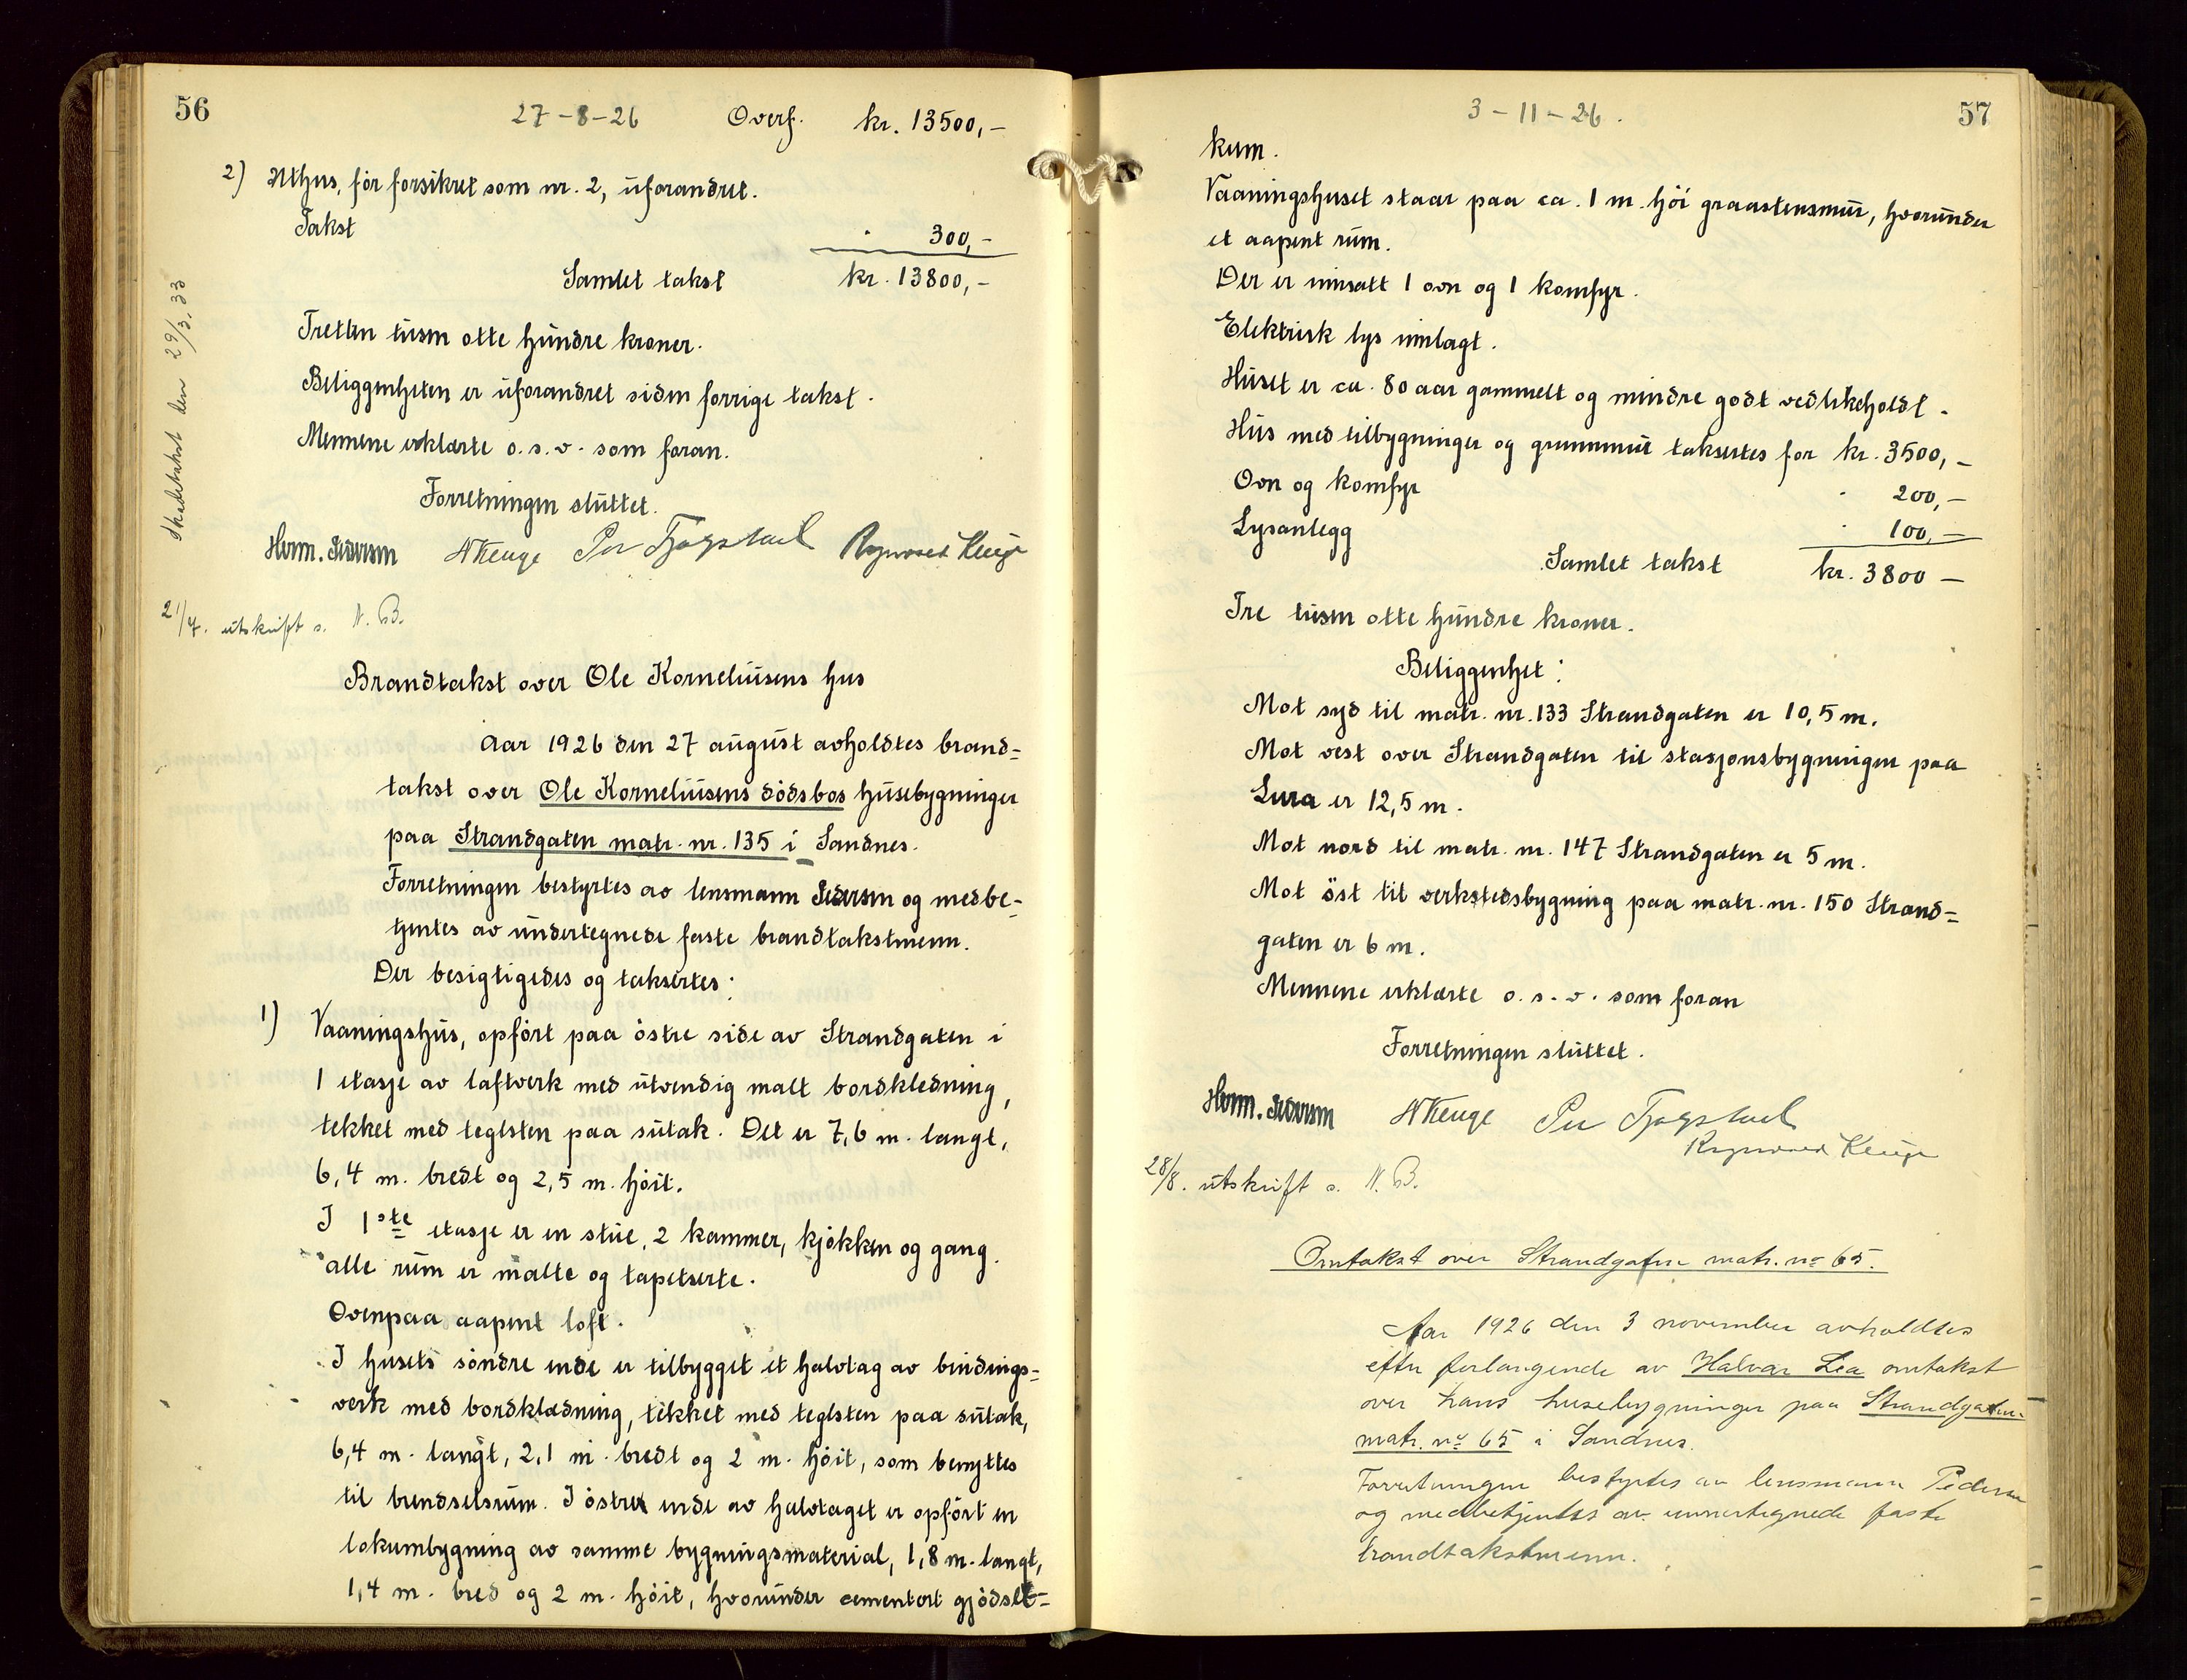 56
27-8-26 Overf. kr. 13500,-
2) Uthus, før forsikret som nr. 2, uforandret.
Takst 300,-
Samlet takst kr. 13800,-
Tretten tusen otte hundre kroner.
Beliggenheten er uforandret siden forrige takst.
Mennene erklærte o.s.v. som foran.
Forretningen sluttet.
Herm. Pedersen Per Tjøgstad
21/4. utskrift s. N.B.
Skadetakst den 29/3.33
Brandtakst over Ole Korneliusens hus
Aar 1926 den 27 august avholdtes brand=
takst over Ole Korneliusens dødsbos husebygninger
paa Strandgaten matr. nr. 135 i Sandnes.
Forretningen bestyrtes av lensmann Pedersen og medbe=
tjentes av undertegnede faste brandtakstmenn.
Der besigtigedes og taksertes:
1) Vaaningshus, opført paa østre side av Strandgaten i
1 etasje av laftverk med utvendig malt bordkledning,
tekket med teglsten paa sutak. Det er 7,6 m. langt,
6,4 m. bredt og 2,5 m. høit.
I 1ste etasje er en stue, 2 kammer, kjøkken og gang.
alle rum er malte og tapetserte.
Ovenpaa aapent loft.
I husets søndre ende er tilbygget et halvtag av bindings=
verk med bordklædning, tekket med teglsten paa sutak,
6,4 m. langt, 2,1 m. bredt og 2 m. høit, som benyttes
til brendselsrum. I østre ende av halvtaget er opført en
lokumbygning av samme bygningsmaterial, 1,8 m. langt,
1,4 m. bred og 2 m. høit, hvorunder cementert gjødsel=
3-11-26.
57
kum.
Vaaningshuset staar paa ca. 1 m. høi graastensmur, hvorunder
et aapent rum.
Der er innsatt 1 ovn og 1 komfyr.
Elektrisk lys innlagt.
Huset er ca. 80 aar gammelt og mindre godt vedlikeholdt.
Hus med tilbygninger og grunnmur taksertes for kr. 3500,-
Ovn og komfyr 200,-
Lysanlegg 100,-
Samlet takst kr. 3800-
Tre tusen otte hundre kroner.
Beliggenhet:
Mot syd til matr. nr. 133 Strandgaten er 10,5 m.
Mot vest over Strandgaten til stasjonsbygningen paa
Lura er 12,5 m.
Mot nord til matr. nr. 147 Strandgaten er 5 m.
Mot øst til verkstedsbygning paa matr. nr. 150 Strand=
gaten er 6 m.
Mennene erklærte o.s.v. som foran
Forretningen sluttet.
Herm. Pedersen Per Tjøgstad
28/8. utskrift s. N.B.
Omtakst over Strandgaten matr. no 65.
Aar 1926 den 3 november avholdtes
efter forlangende av Halvar Lea omtakst
over hans husebygninger paa Strandgaten
matr. no 65 i Sandnes.
Forretningen bestyrtes av lensmann Pedersen
og medbetjentes av unnertegnede faste
brandtakstmenn.